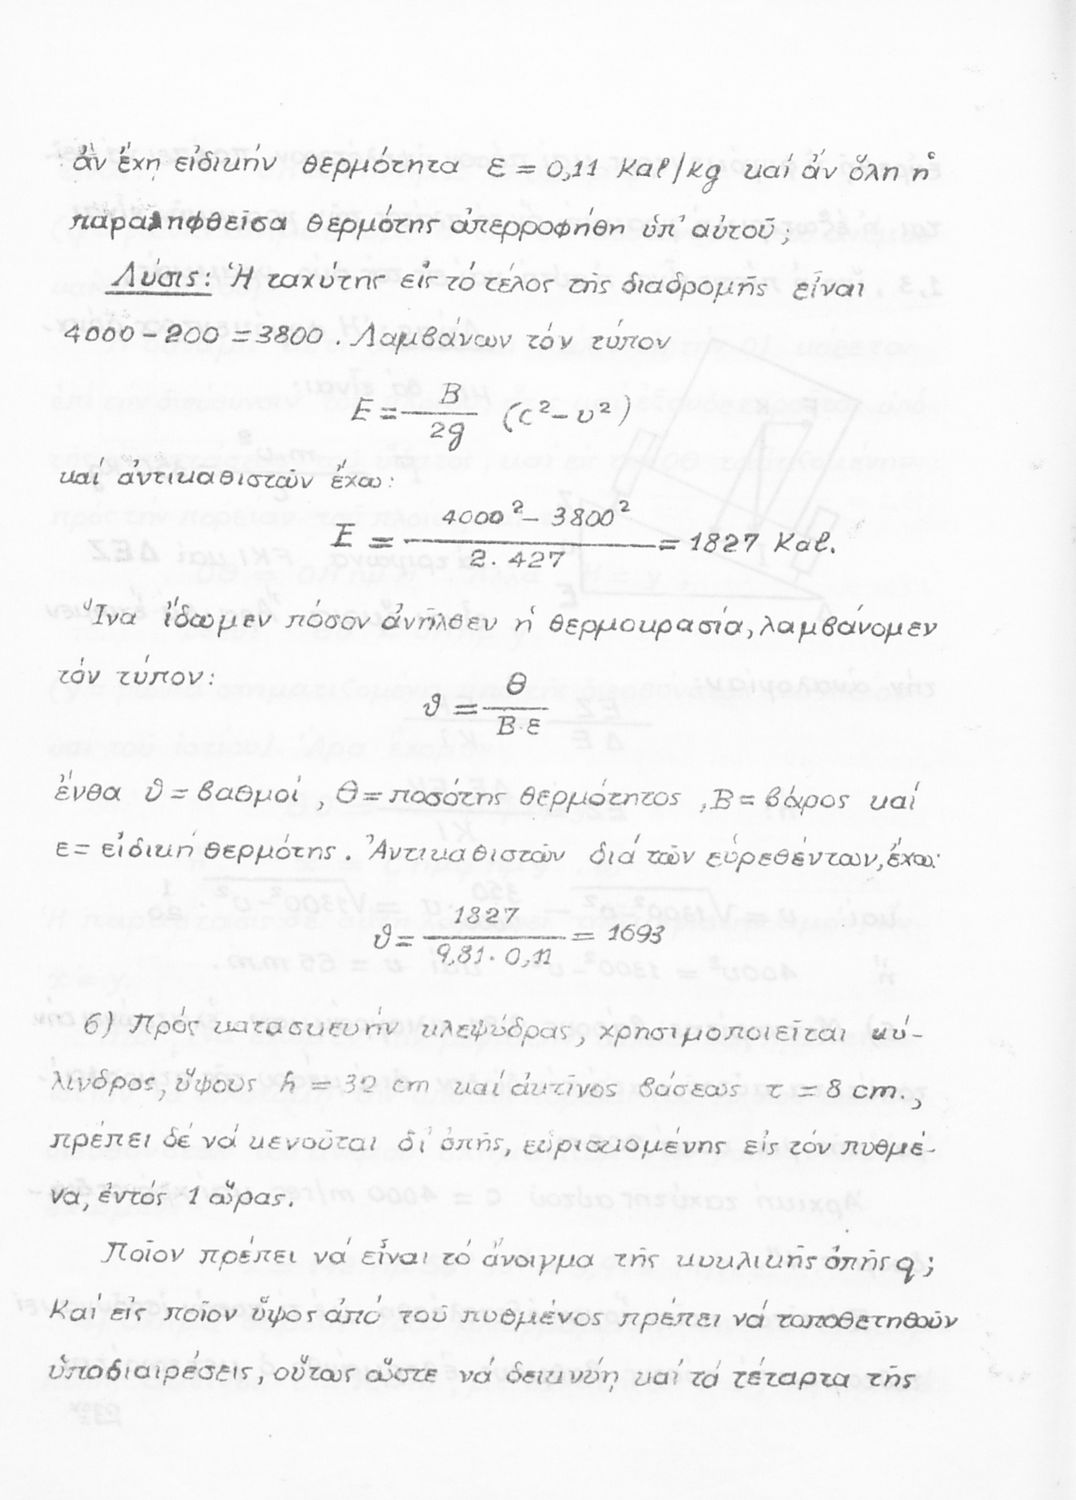 ἄν ἔχῃ εἰδικήν θερμότητα ε = 0,11 Kal/kg καί ἄν ὅλη ἡ
παραληφθεῖσα θερμότης ἀπερροφήθη ὑπ' αὐτοῦ;
Λύσις: Ἡ ταχύτης εἰς τό τέλος τῆς διαδρομῆς εἶναι
4000 - 200 = 3800 . Λαμβάνων τόν τύπον
E = B / 2g (c² - υ²)
καί ἀντικαθιστῶν ἔχω:
E = 4000² - 3800² / 2 . 427 = 1827 Kal.
Ἵνα ἴδωμεν πόσον ἀνῆλθεν ἡ θερμοκρασία, λαμβάνομεν
τόν τύπον:
ϑ = Θ / B·ε
ἔνθα ϑ = βαθμοί , Θ = ποσότης θερμότητος , B = βάρος καί
ε = εἰδική θερμότης . Ἀντικαθιστῶν διά τῶν εὑρεθέντων, ἔχω:
ϑ = 1827 / 9,81 . 0,11 = 1693
6) Πρός κατασκευήν κλεψύδρας, χρησιμοποιεῖται κύ-
λινδρος, ὕψους h = 32 cm καί ἀκτῖνος βάσεως τ = 8 cm.,
πρέπει δέ νά κενοῦται δι' ὀπῆς, εὑρισκομένης εἰς τόν πυθμέ-
να, ἐντός 1 ὥρας.
Ποῖον πρέπει νά εἶναι τό ἄνοιγμα τῆς κυκλικῆς ὀπῆς q;
Καί εἰς ποῖον ὕψος ἀπό τοῦ πυθμένος πρέπει νά τοποθετηθοῦν
ὑποδιαιρέσεις, οὕτως ὥστε νά δεικνύῃ καί τά τέταρτα τῆς